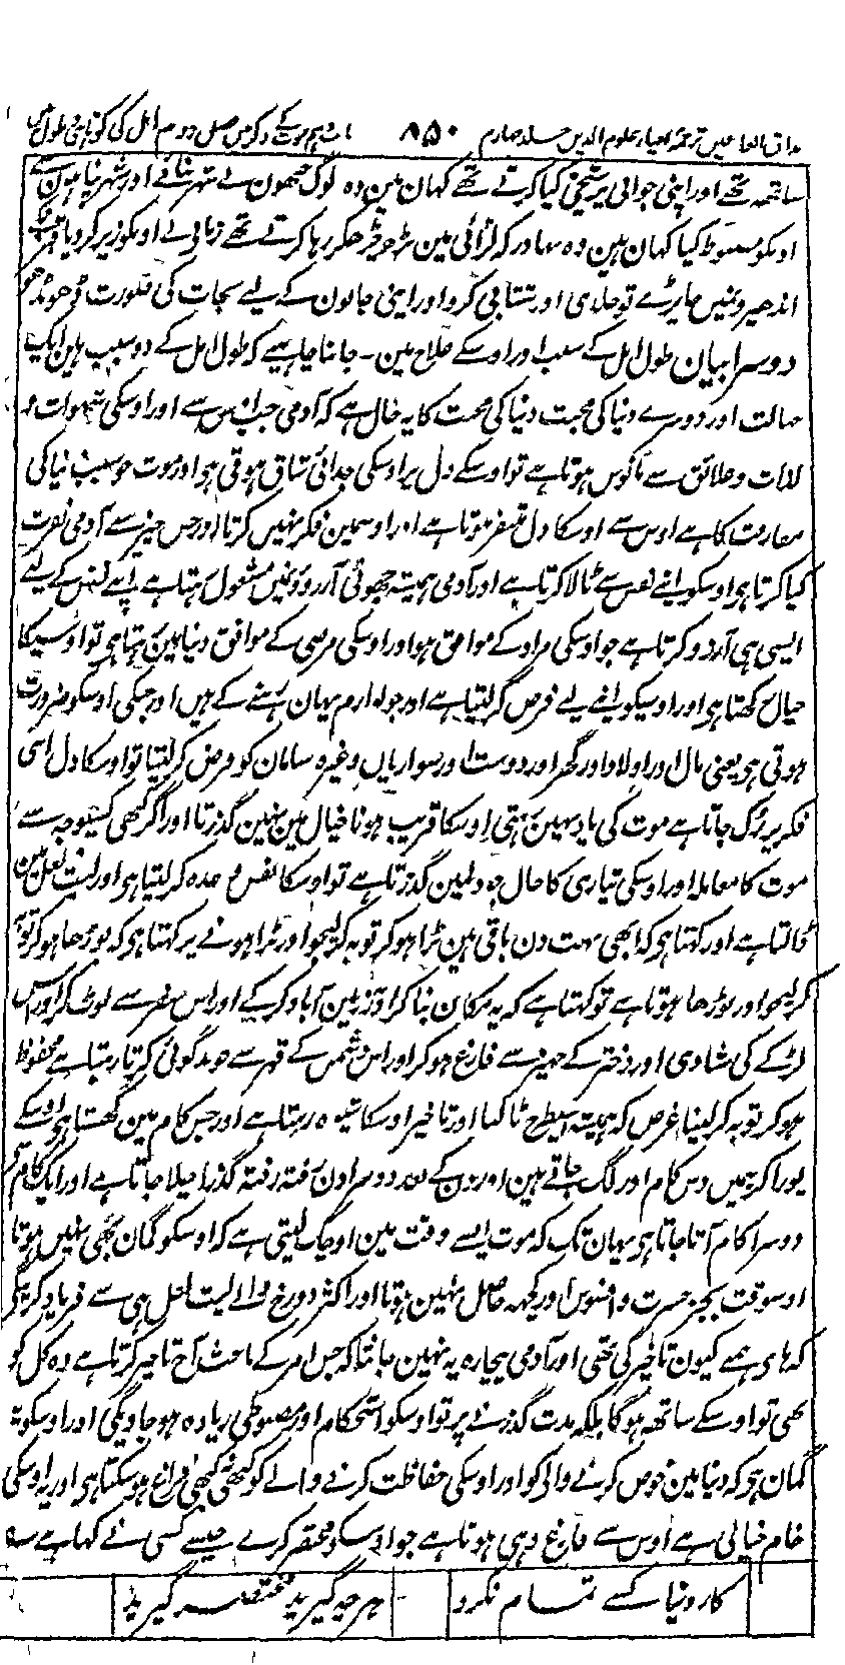 مذاق العارفین ترجمۂ احیاء علوم الدین جلد چہارم ۸۵۰ باب دہم موت کے ذکر میں فصل دوم امل کی کوتاہی و طول میں
ساتھ تھے اور اپنی جوانی پر شیخی کیا کرتے تھے کہان ہین وہ لوگ جنھون نے شہر بنائے اور شہر پناہون سے
اونکو مضبوط کیا کہان ہین وہ بہادر کہ لڑائی مین بڑھ چڑھکر رہا کرتے تھے زمانی نے اونکو زیر کر دیا قبر کے
اندھیرونمیں جا پڑے تو جلدی اور شتابی کرو اور اپنی جانون کے لیے نجات کی صورت ڈھونڈھو
دوسرا بیان طول امل کے سبب اور اوسکے علاج مین۔ جاننا چاہیے کہ طول امل کے دو سبب ہین ایک
جہالت اور دوسرے دنیا کی محبت دنیا کی محبت کا یہ حال ہے کہ آدمی جب اوس سے اور اوسکی شہوات و
لذات و علائق سے مانوس ہوتا ہے تو اوسکے دل پر اوسکی جدائی شاق ہوتی ہی اور موت جو سبب دنیا کی
مفارقت کا ہے اوس سے اوسکا دل متنفر ہوتا ہے اور اوسمین فکر نہیں کرتا اور جس چیز سے آدمی نفرت
کیا کرتا ہی اوسکو اپنے نفس سے ٹالا کرتا ہے اور آدمی ہمیشہ جھوٹی آرزوونمیں مشغول رہتا ہے اپنے نفس کے لیے
ایسی ہی آرزو کرتا ہے جو اوسکی مراد کے موافق ہو اور اوسکی مرضی کے موافق دنیا مین رہنا ہی تو اوسیکا
خیال رکھتا ہی اور اوسیکو اپنے لیے فرض کر لیتا ہے اور جو لوازم یہان رہنے کے ہیں اور جنکی اوسکو ضرورت
ہوتی ہی یعنی مال اور اولاد اور گھر اور دوست اور سواریاں وغیرہ سامان کو فرض کر لیتا تو اوسکا دل اسی
فکر پر رک جاتا ہے موت کی یاد نہین رہتی اوسکا قریب ہونا خیال مین نہین گذرتا اور اگر کبھی کسیوجہ سے
موت کا معاملہ اور اوسکی تیاری کا حال دلمین گذرتا ہے تو اوسکا نفس وعدہ کر لیتا ہی اور لیت لعل مین
ٹالتا ہے اور کہتا ہی کہ ابھی بہت دن باقی ہین بڑا ہو کر توبہ کر لیجو اور بڑا ہونے پر کہتا ہی کہ بوڑھا ہو کر توبہ
کر لیجو اور بوڑھا ہوتا ہے تو کہتا ہے کہ یہ مکان بنا کر اور زمین آباد کر کے اور اس سفر سے لوٹ کر اور اس
لڑکے کی شادی اور دختر کے جہیز سے فارغ ہو کر اور اس دشمن کے قہر سے جو بدگوئی کرتا رہتا ہے محفوظ
ہو کر توبہ کر لینا غرض کہ ہمیشہ اسیطرح ٹالنا اور تاخیر اوسکا شیوہ رہتا ہے اور جس کام مین گھستا ہی اوسکے
پورا کرنیمیں دس کام اور لگ جاتے ہین اور دن کے بعد دوسرا دن رفتہ رفتہ گذرا چلا جاتا ہے اور ایک کام پر
دوسرا کام آتا جاتا ہی یہان تک کہ موت ایسے وقت مین اوچک لیتی ہے کہ اوسکو گمان بھی نہیں ہوتا
اوسوقت بجز حسرت و افسوس اور کچھہ حاصل نہین ہوتا اور اکثر دوزخ والے لیت لعل ہی سے فریاد کرینگے
کہ ہای ہمنے کیون تاخیر کی تھی اور آدمی بیچارہ یہ نہین جانتا کہ جس امر کے باعث آج تاخیر کرتا ہے وہ کل کو
بھی تو اوسکے ساتھ ہوگا بلکہ مدت گذرنے پر تو اوسکو استحکام اور مضبوطی زیادہ ہو جاویگی اور اوسکو یہ
گمان ہی کہ دنیا مین خوض کرنے والی کو اور اوسکی حفاظت کرنے والے کو کبھی نہ کبھی فراغ ہو سکتا ہی اور یہ اوسکی
خام خیالی ہے اوس سے فارغ وہی ہوتا ہے جو اوسکو مختصر کرے جیسے کسی نے کہا ہے
کار دنیا کسے تمام نکرد ہرچہ گیرید مختصر گیرید